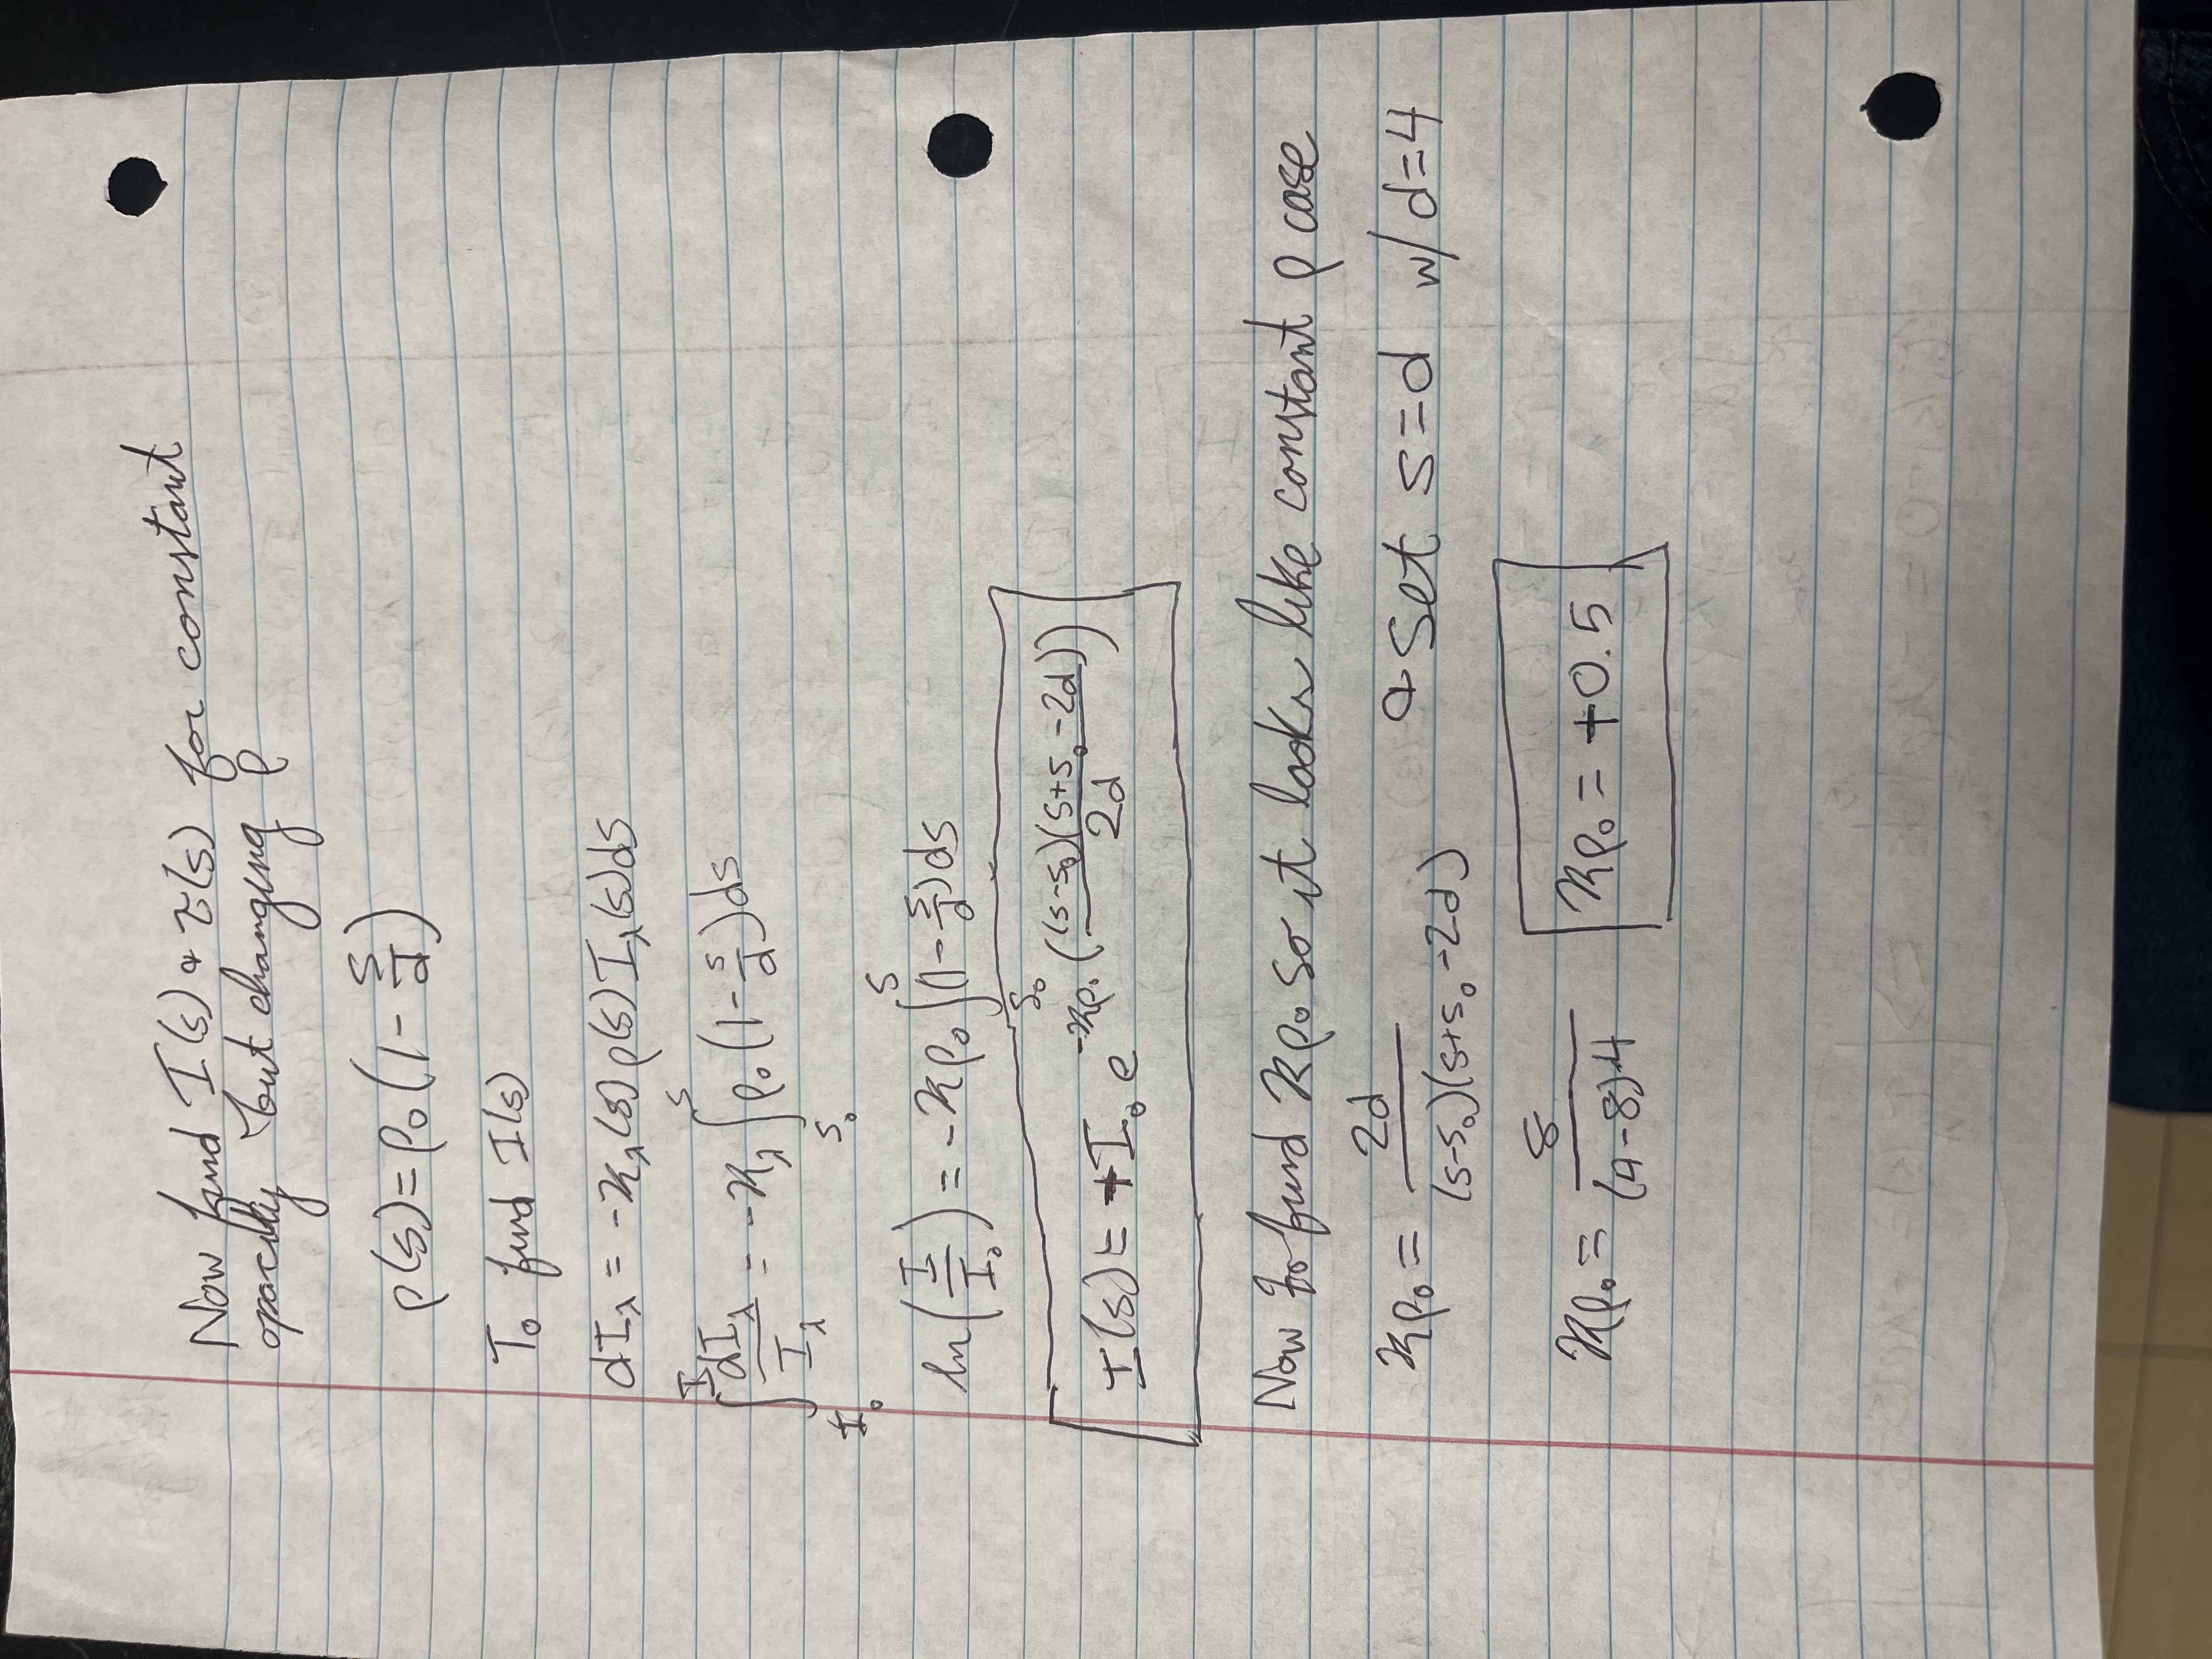 Now find I(s) & τ(s) for constant
opacity but changing ρ
ρ(s) = ρ₀(1 - s/d)
To find I(s)
dI_λ = -κ_λ(s) ρ(s) I_λ(s) ds
∫_{I₀}^{I} dI_λ/I_λ = -κ_λ ∫_{s₀}^{s} ρ₀(1 - s/d) ds
ln(I/I₀) = -κρ₀ ∫_{s₀}^{s} (1 - s/d) ds
I(s) = +I₀ e^{-κρ₀((s-s₀)(s+s₀-2d)/2d))}
Now to find κρ₀ so it looks like constant ρ case
κρ₀ = 2d/((s-s₀)(s+s₀-2d)) & Set s=d w/ d=4
κρ₀ = 8/((4-8)·4) κρ₀ = +0.5